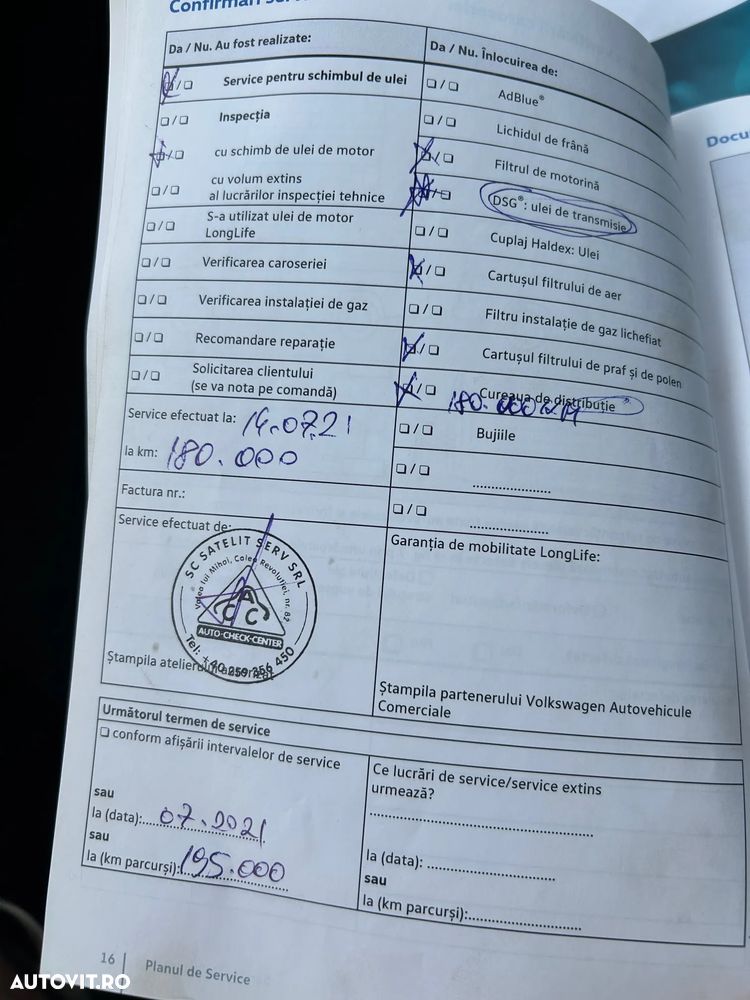 Confirmări
Da / Nu. Au fost realizate:
❏ / ❏ Service pentru schimbul de ulei
❏ / ❏ Inspecția
❏ / ❏ cu schimb de ulei de motor
❏ / ❏ cu volum extins
al lucrărilor inspecției tehnice
❏ / ❏ S-a utilizat ulei de motor
LongLife
❏ / ❏ Verificarea caroseriei
❏ / ❏ Verificarea instalației de gaz
❏ / ❏ Recomandare reparație
❏ / ❏ Solicitarea clientului
(se va nota pe comandă)
Service efectuat la: 14.07.21
la km: 180.000
Factura nr.:
Service efectuat de:
SC SATELIT SERV SRL
Valea lui Mihai, Calea Revoluției, nr. 82
ACC
AUTO-CHECK-CENTER
Tel: +40 259 356 450
Ștampila atelierului
Da / Nu. Înlocuirea de:
❏ / ❏ AdBlue®
❏ / ❏ Lichidul de frână
❏ / ❏ Filtrul de motorină
❏ / ❏ DSG®: ulei de transmisie
❏ / ❏ Cuplaj Haldex: Ulei
❏ / ❏ Cartușul filtrului de aer
❏ / ❏ Filtru instalație de gaz lichefiat
❏ / ❏ Cartușul filtrului de praf și de polen
❏ / ❏ Cureaua de distribuție
180.000 KM
❏ / ❏ Bujiile
❏ / ❏ .....................
❏ / ❏ .....................
Garanția de mobilitate LongLife:
Ștampila partenerului Volkswagen Autovehicule
Comerciale
Următorul termen de service
❏ conform afișării intervalelor de service
sau
la (data): 07.2021
sau
la (km parcurși): 195.000
Ce lucrări de service/service extins
urmează?
la (data):
sau
la (km parcurși):
16 | Planul de Service
Docu
AUTOVIT.RO